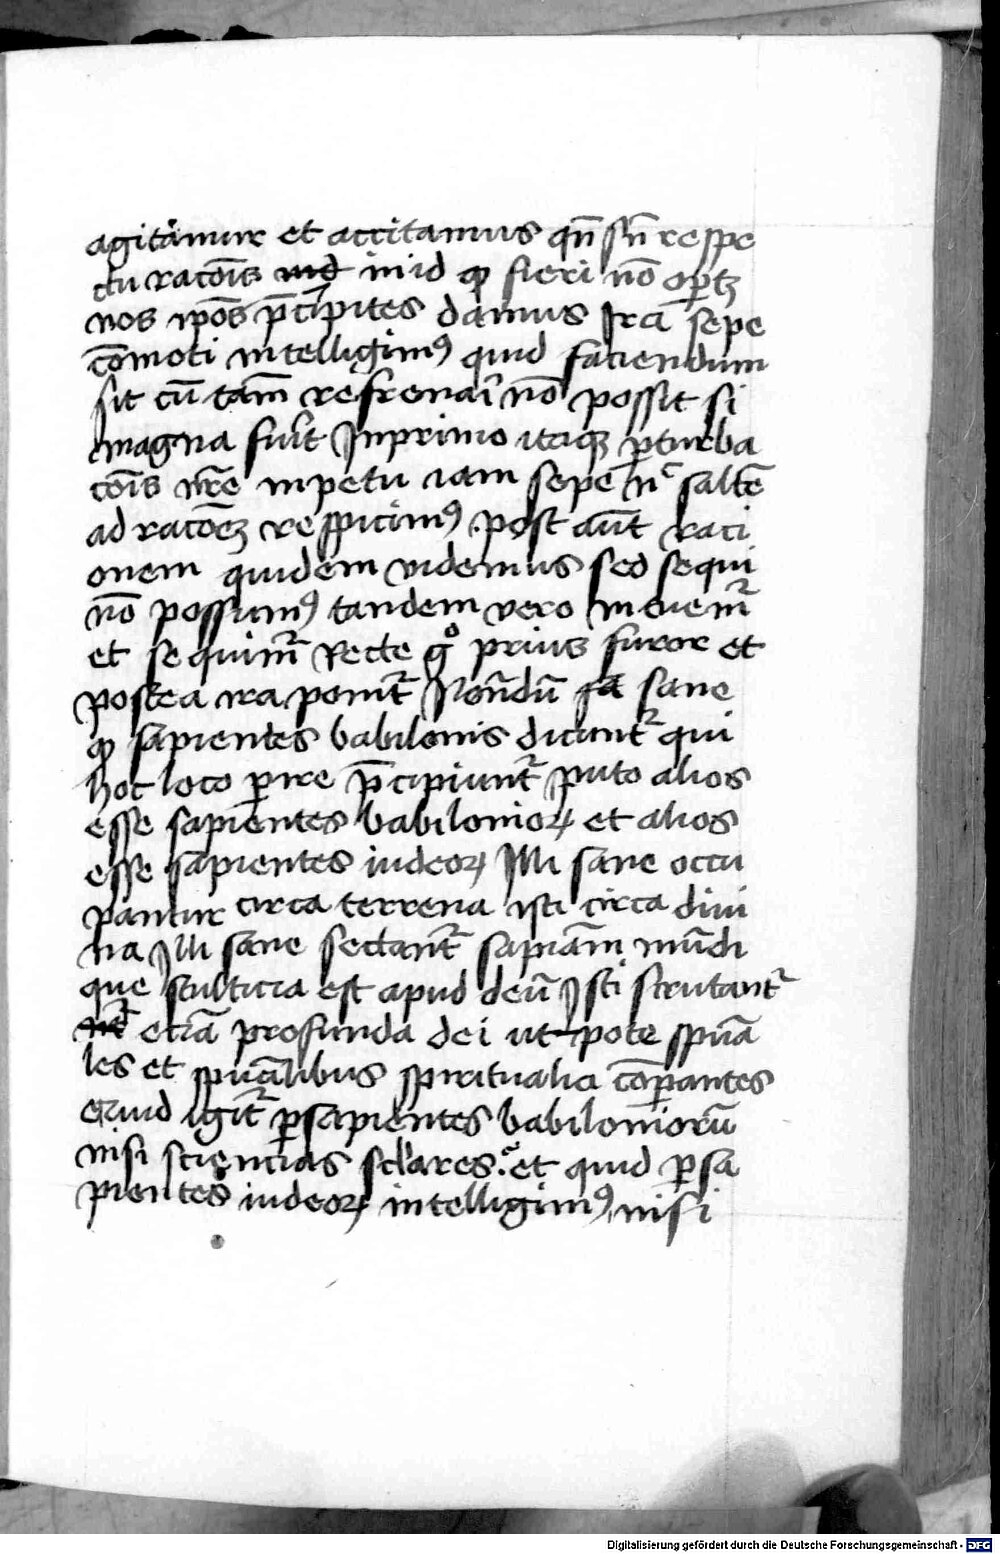 agitamur et accitamus qn̄ sn̄ respe
ctu racōis in id qꝫ fieri nō oportꝫ
nos ip̄os p̄cipites damus Ira sepe
cōmoti intelligimꝰ quid faciendum
sit cū tam̄ refrenari nō possit si
magna fuit Inprimo itaqꝫ ꝑturba
cōis nr̄e inpetu iam sepe saltē
ad racōeꝫ respicimꝰ post aūt raci
onem quidem videmus sed sequi
nō possumꝰ tandem vero
et sequimr̄ Recte gͦ prius furor et
postea ira ponitr̄ Nonādū sane
qꝫ sapientes babilonis dicuntr̄ qui
hoc loco ꝑire p̄cipiuntr̄ puto alios
esse sapientes babilonioꝝ et alios
esse sapientes iudeoꝝ Illi sane occu
pantur circa terrena isti circa divi
na Illi sane sectantr̄ sapiām mūdi
que stulticia est apud deū Isti scrutantr̄
eciā profunda dei ut pote spūa
les et spūalibus spiritualia cōꝑantes
Quid igitr̄ ꝑ sapientes babiloniorū
nisi sciencias sclares. et quid ꝑ sa
pientes iudeoꝝ intelligimꝰ nisi
Digitalisierung gefördert durch die Deutsche Forschungsgemeinschaft - DFG